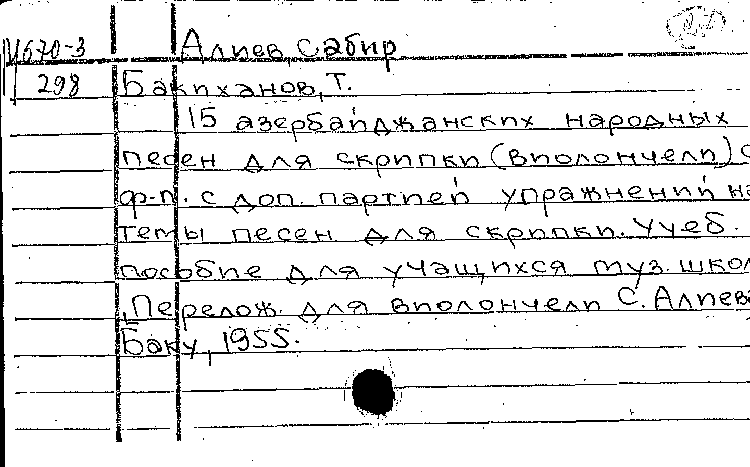 М670-3 Алиев, Сабир
298 Бакиханов, Т.
15 азербайджанских народных
песен для скрипки (виолончели) с
ф-п. с доп. партией упражнений на
темы песен для скрипки. Учеб.
пособие для учащихся муз. школ
Перелож. для виолончели С. Алиева
Баку, 1955.